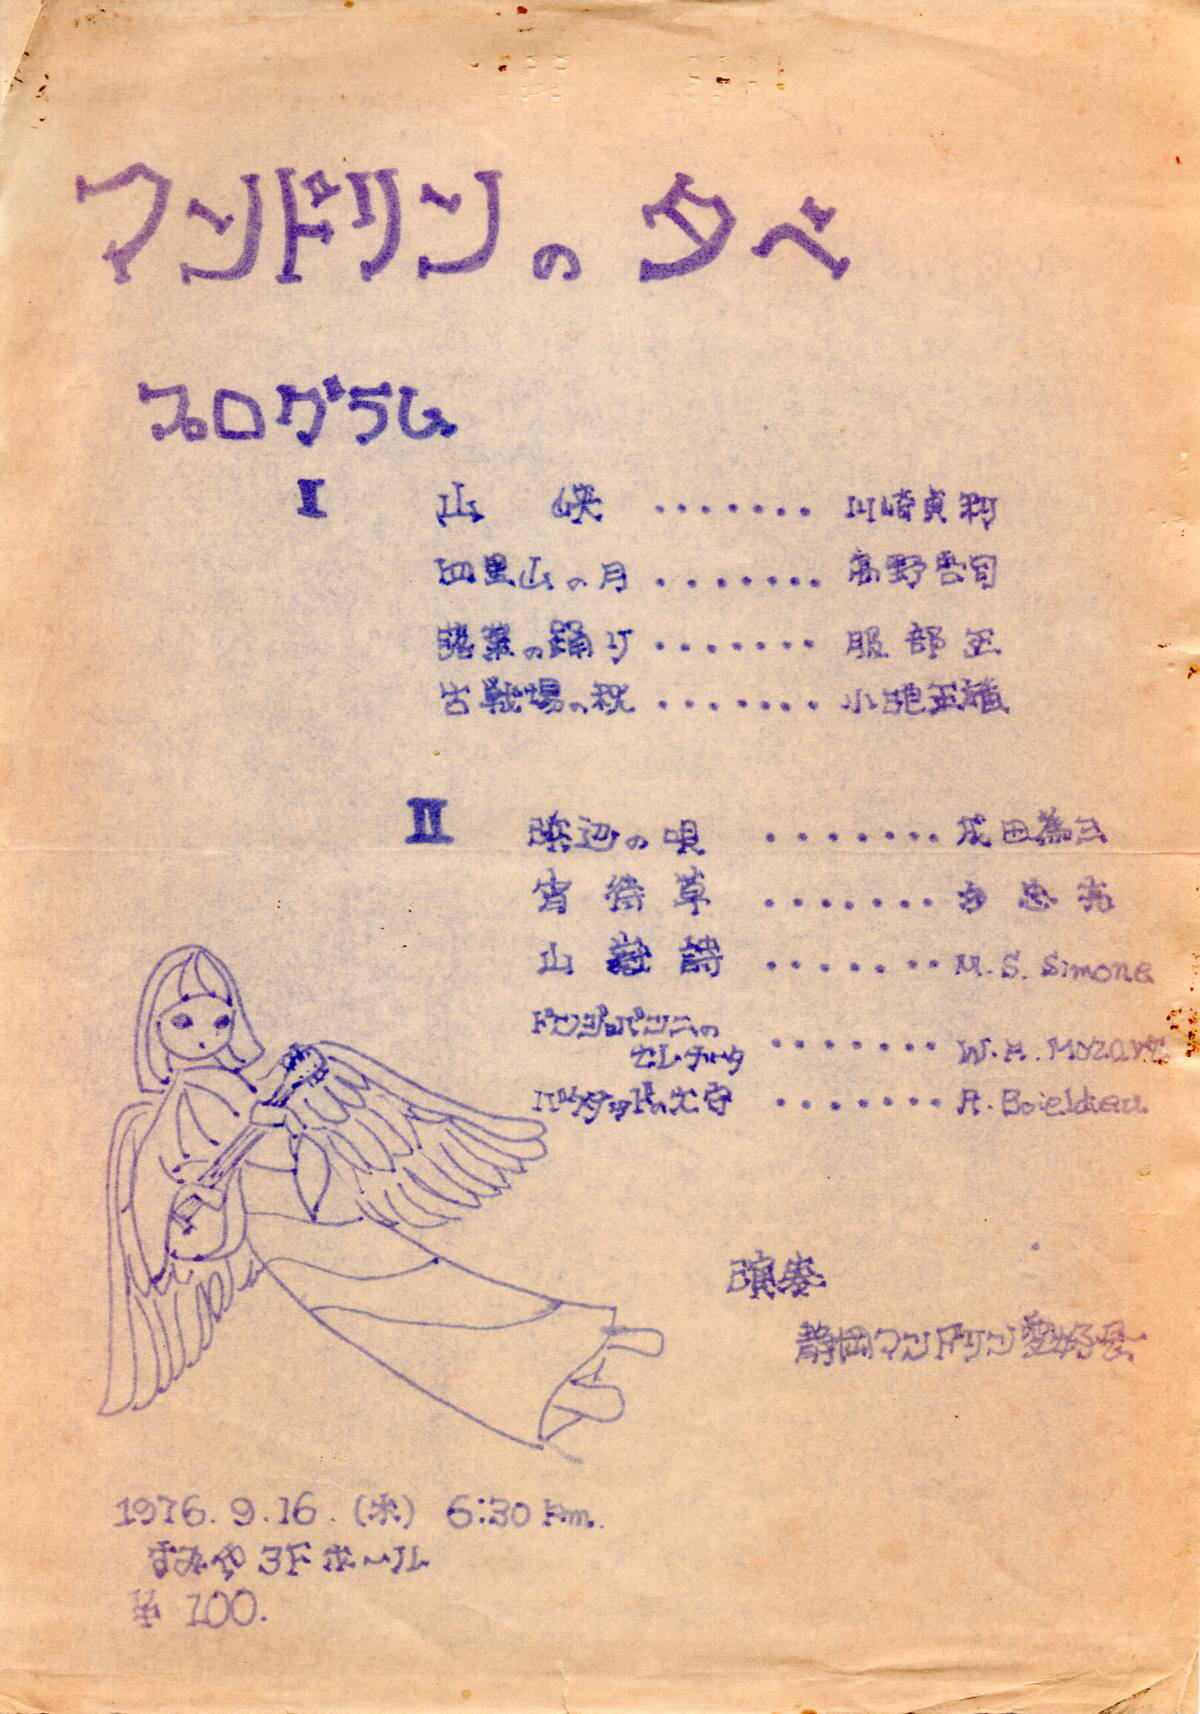 マンドリンの 夕べ
プログラム
I 山 峡 ....... 川崎貞利
四里山の月 ....... 高野
落葉の踊り ....... 服部正
古戦場の秋 ....... 小池正雄
II 浜辺の唄 ....... 成田為三
宵待草 ....... 多 忠 亮
山 嶽 詩 ....... M. S. Simone
ドンジョバンニの
セレナータ ....... W. A. Mozart
バグダッドの太守 ....... A. Boieldieu
演奏
静岡マンドリン愛好会
1976. 9. 16. (木) 6:30 P.m.
すみや 3F ホール
¥ 100.